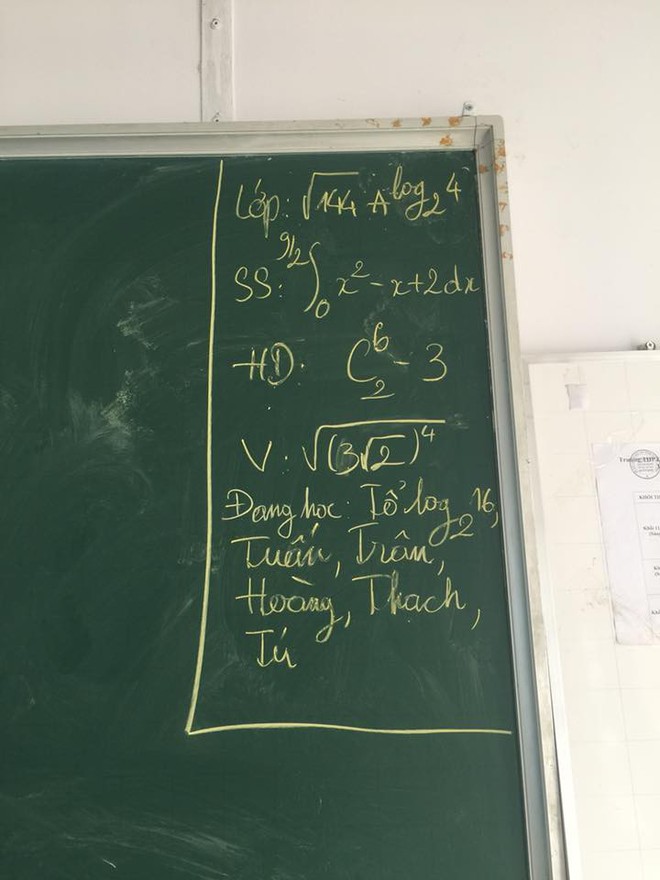 Lớp: √144 A log₂4
SS: ∫₀^(9/2) x² - x + 2dx
HD: C₂⁶ - 3
V: √(3√2)⁴
Đang học: Tổ log₂16,
Tuấn, Trân,
Hoàng, Thạch,
Tú
Trường THPT